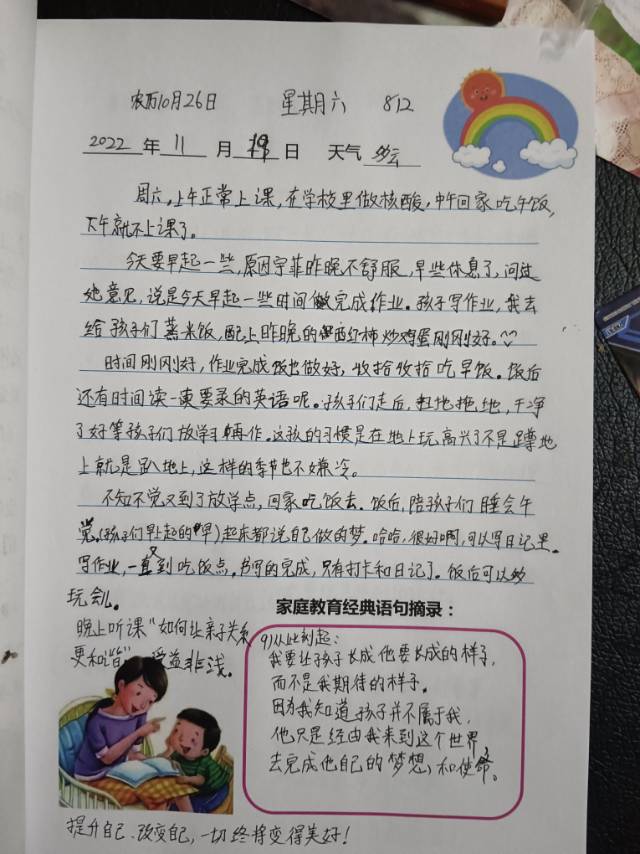 农历10月26日 星期六 812
2022年 11月 19日 天气 多云
周六,上午正常上课,在学校里做核酸,中午回家吃午饭,
下午就不上课了。
今天要早起一些,原因宇菲昨晚不舒服,早些休息了,问过
她意见,说是今天早起一些时间做完成作业。孩子写作业,我去
给孩子们蒸米饭,配上昨晚的西红柿炒鸡蛋刚刚好。
时间刚刚好,作业完成饭也做好,收拾收拾吃早饭。饭后
还有时间读一读要录的英语呢。孩子们走后,扫地拖地,干净
了好等孩子们放学再作。这孩的习惯是在地上玩,高兴了不是蹲地
上就是趴地上,这样的季节也不嫌冷。
不知不觉又到了放学点,回家吃饭去。饭后,陪孩子们睡会午
觉(孩子们早上起的早)起来都说自己做的梦。哈哈,很好啊,可以写日记里。
写作业,一直到吃饭点。书写的完成,只有打卡和日记了。饭后可以多
玩会儿。
晚上听课“如何让亲子关系
更和谐”,受益非浅。
家庭教育经典语句摘录:
9)从此刻起:
我要让孩子长成他要长成的样子,
而不是我期待的样子。
因为我知道孩子并不属于我,
他只是经由我来到这个世界,
去完成他自己的梦想,和使命。
提升自己、改变自己,一切终将变得美好!